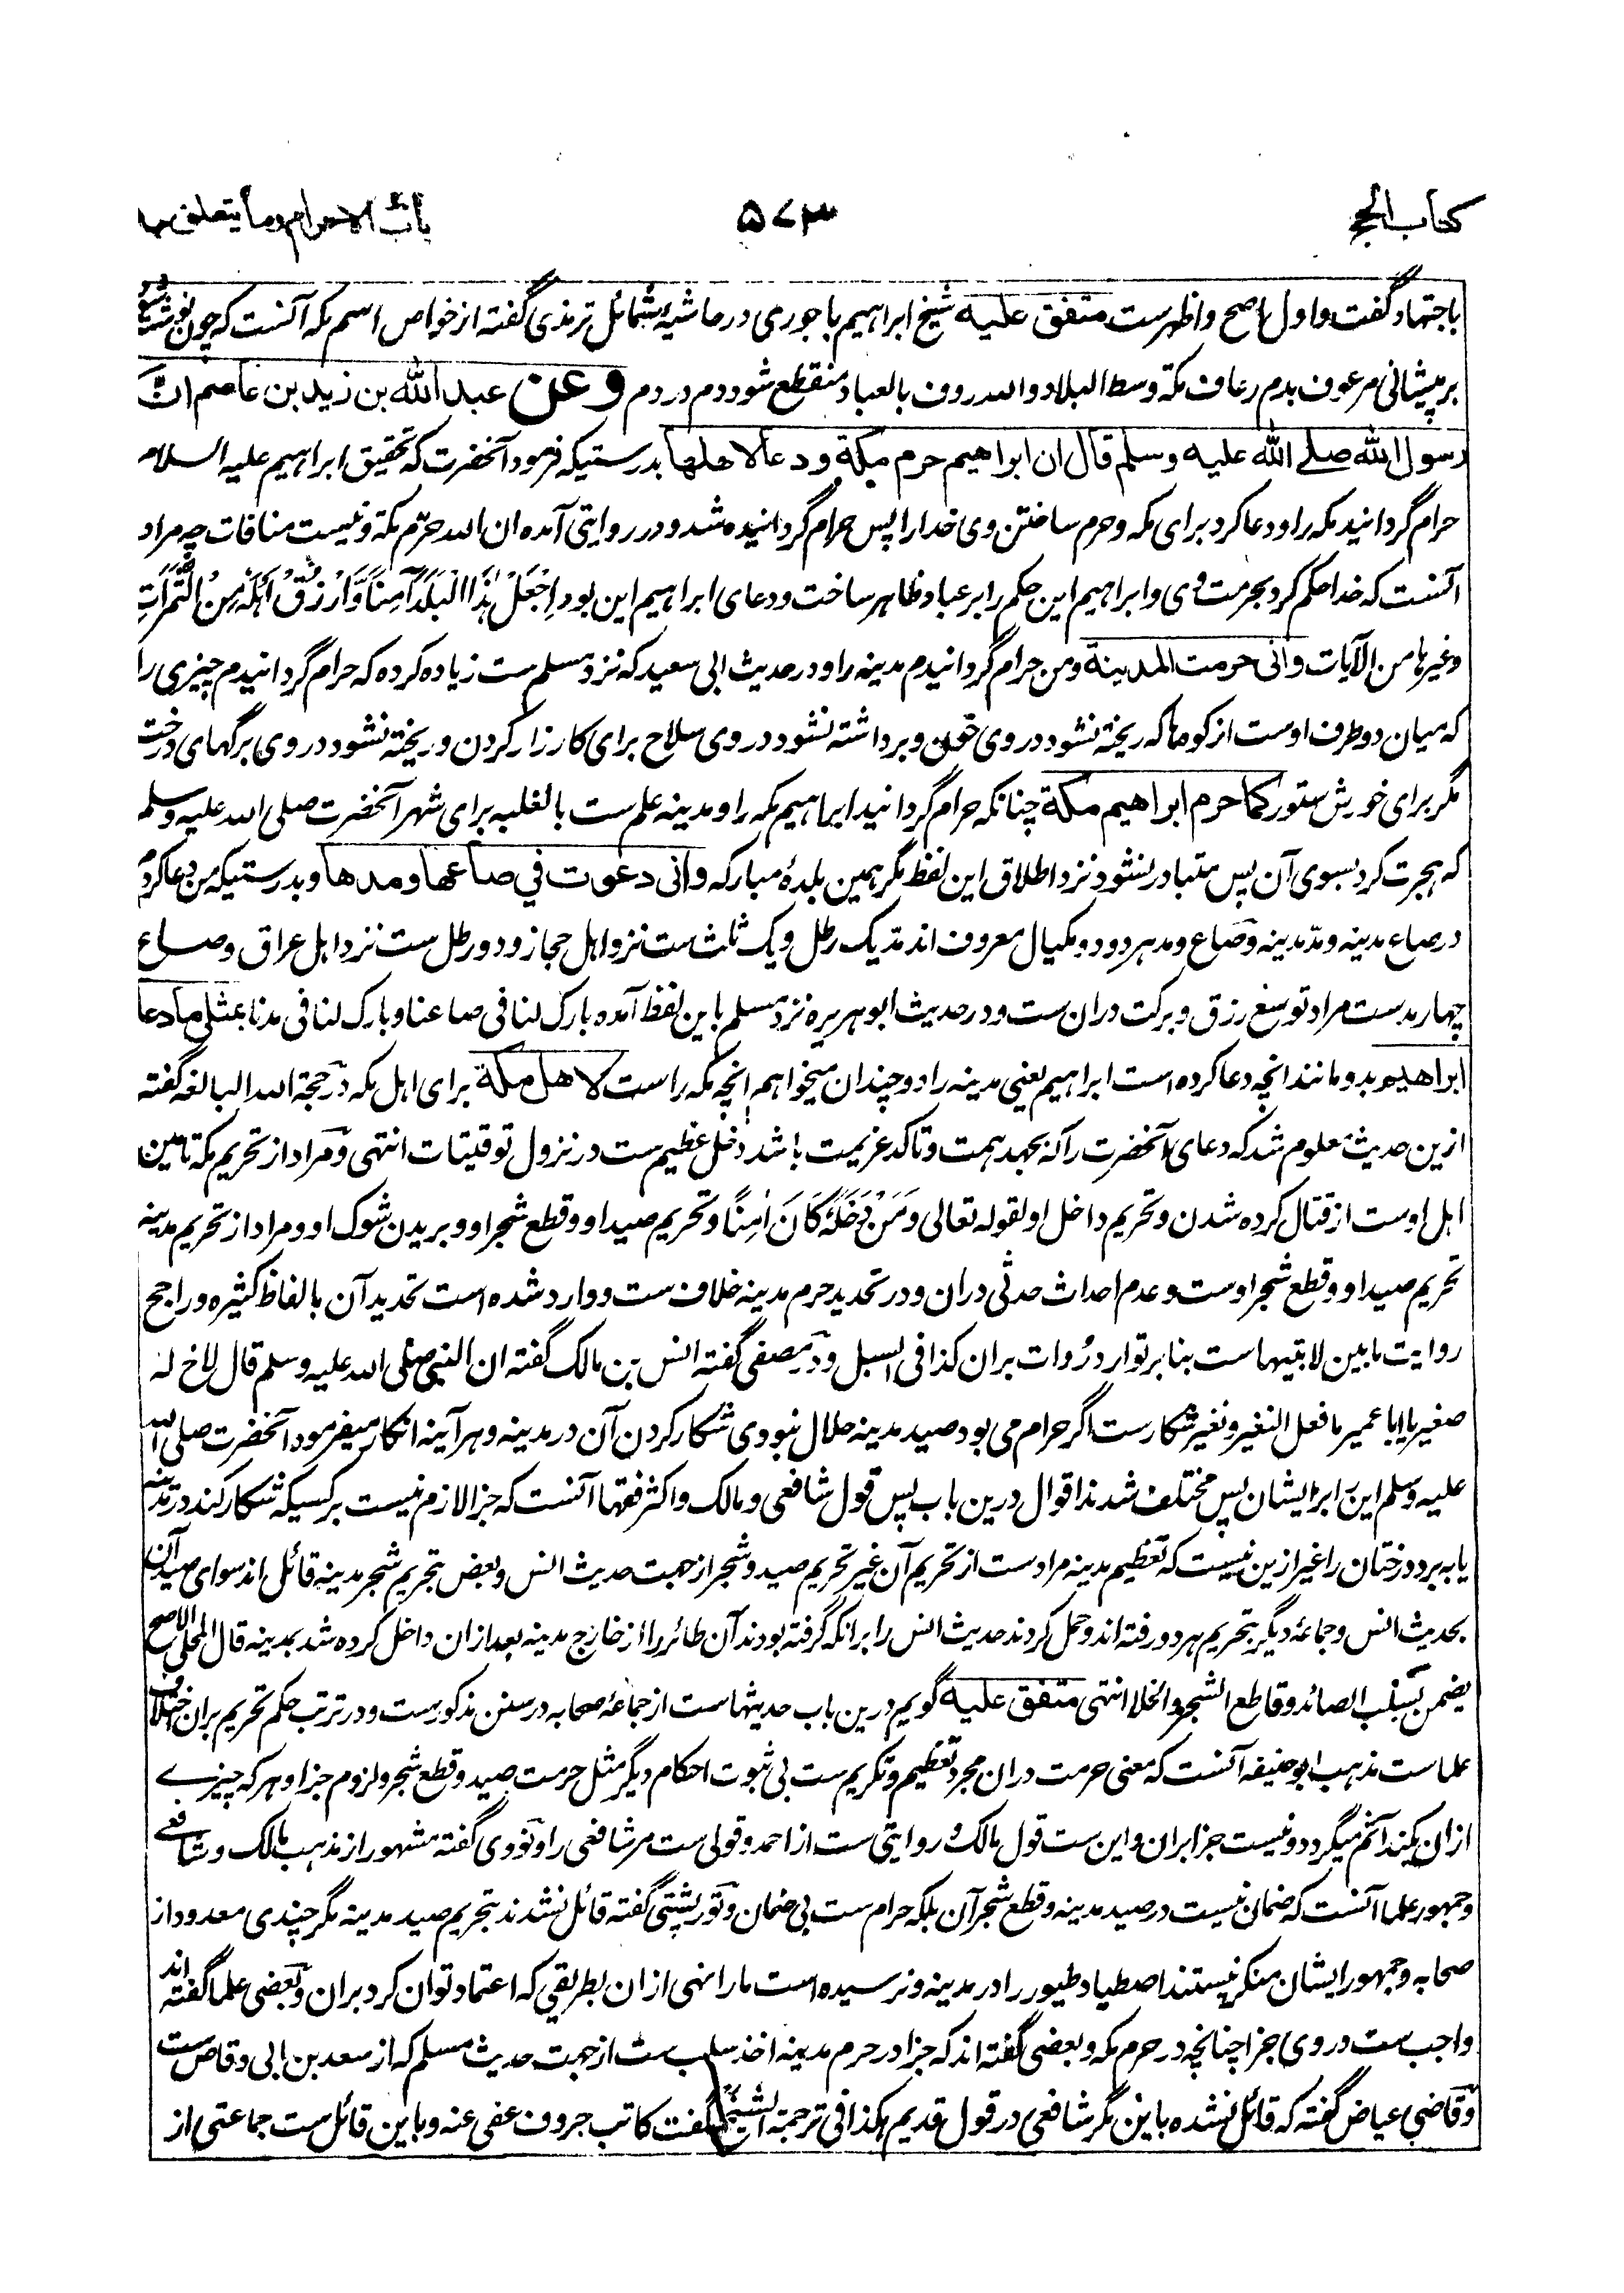 کتاب الحج
۵۷۳
باب الاحرام وما یتعلق به
باجتهاد گفت و اول اصح و اظهرست متفق علیه شیخ ابراهیم باجوری در حاشیهٔ شمائل ترمذی گفته از خواص اسم مکه آنست که چون نوشته شود
بر پیشانی مرعوف بدم رعاف مکة وسط البلاد والله روف بالعباد منقطع شود دم در دم وعن عبد الله بن زید بن عاصم ان
رسول الله صلے الله علیه وسلم قال ان ابراهیم حرم مکة و دعا لاهلها بدرستیکه فرمود آنحضرت که تحقیق ابراهیم علیه السلام
حرام گردانید مکه را و دعا کرد برای مکه و حرم ساختن وی خدا را پس حرام گردانیده شد و در روایتی آمده ان الله حرّم مکة و نیست منافات چه مراد
آنست که خدا حکم کرد بحرمت وی و ابراهیم این حکم را بر عباد ظاهر ساخت و دعای ابراهیم این بود اِجْعَلْ هٰذَا الْبَلَدَ آمِنًا وَّارْزُقْ اَهْلَهٗ مِنَ الثَّمَرَاتِ
وغیرها من الآیات وانی حرمت المدینة ومن حرام گردانیدم مدینه را و در حدیث ابی سعید که نزد مسلم ست زیاده کرده که حرام گردانیدم چیزی را
که میان دو طرف اوست از کوهها که ریخته نشود در وی خون و برداشته نشود در وی سلاح برای کارزار کردن و ریخته نشود در وی برگهای درخت
مگر برای خورش ستور کما حرم ابراهیم مکة چنانکه حرام گردانید ابراهیم مکه را و مدینه علم ست بالغلبه برای شهر آنحضرت صلی الله علیه وسلم
که هجرت کرد بسوی آن پس متبادر نشود نزد اطلاق این لفظ مگر همین بلدهٔ مبارکه وانی دعوت فی صاعها ومدها و بدرستیکه من دعا کردم
در صاع مدینه و مدّ مدینه و صاع و مد هر دو دو مکیال معروف اند مد یک رطل و یک ثلث ست نزد اهل حجاز و دو رطل ست نزد اهل عراق و صاع
چهار مد ست مراد توسیع رزق و برکت دران ست و در حدیث ابو هریره نزد مسلم باین لفظ آمده بارک لنا فی صاعنا و بارک لنا فی مدنا بمثلی ما دعا
ابراهیم بدو مانند انچه دعا کرده است ابراهیم یعنی مدینه را دو چندان میخواهم انچه مکه راست لاهل مکة برای اهل مکه در حجة الله البالغه گفته
ازین حدیث معلوم شد که دعای آنحضرت را که بجهد همت و تاکد عزیمت باشد دخل عظیم ست در نزول توقیتات انتهی و مراد از تحریم مکه تامین
اهل اوست از قتال کرده شدن و تحریم داخل او لقوله تعالی وَمَنْ دَخَلَهٗ كَانَ اٰمِنًا و تحریم صید او و قطع شجر او و بریدن شوک او و مراد از تحریم مدینه
تحریم صید او و قطع شجر اوست و عدم احداث حدثی دران و در تحدید حرم مدینه خلاف ست و وارد شده است تحدید آن بالفاظ کثیره و راجح
روایت ما بین لابتیهاست بنابر توارد رُوات بران کذا فی السبل و در مصفی گفته انس بن مالک گفته ان النبی صلی الله علیه وسلم قال لاخ له
صغیر یا ابا عمیر ما فعل النغیر و نغیر شکارست اگر حرام می بود صید مدینه حلال نبودی شکار کردن آن در مدینه و هر آینه انکار میفرمود آنحضرت صلی الله
علیه وسلم این را بر ایشان پس مختلف شدند اقوال درین باب پس قول شافعی و مالک و اکثر فقها آنست که جزا لازم نیست بر کسیکه شکار کند در مدینه
یا ببرد درختان را غیر ازین نیست که تعظیم مدینه مراد ست از تحریم آن غیر تحریم صید و شجر از جهت حدیث انس و بعض بتحریم شجر مدینه قائل اند سوای صید آن
بحدیث انس و جماعهٔ دیگر بتحریم هر دو رفته اند و حمل کردند حدیث انس را بر آنکه گرفته بودند آن طائر را از خارج مدینه بعد ازان داخل کرده شد بمدینه قال المحلی الاصح
یضمن بسلب الصائد و قاطع الشجر والخلا انتهی متفق علیه گویم درین باب حدیثهاست از جماعهٔ صحابه در سنن مذکورست و در ترتب حکم تحریم بران اختلاف
علماست مذهب ابو حنیفه آنست که معنی حرمت دران مجرد تعظیم و تکریم ست بی ثبوت احکام دیگر مثل حرمت صید و قطع شجر و لزوم جزا و هر که چیزے
ازان بکند آثم میگردد و نیست جزا بران و این ست قول مالک و روایتی ست از احمد و قولی ست مر شافعی را و نووی گفته مشهور از مذهب مالک و شافعے
و جمهور علما آنست که ضمان نیست در صید مدینه و قطع شجر آن بلکه حرام ست بی ضمان و تورپشتی گفته قائل نشدند بتحریم صید مدینه مگر چندی معدود از
صحابه و جمهور ایشان منکر نیستند اصطیاد طیور را در مدینه و نرسیده است ما را نهی ازان بطریقی که اعتماد توان کرد بران و بعضی علما گفته اند
واجب ست در وی جزا چنانچه در حرم مکه و بعضی گفته اند که جزا در حرم مدینه اخذ سلب ست از جهت حدیث مسلم که از سعد بن ابی وقاص ست
و قاضی عیاض گفته که قائل نشده باین مگر شافعی در قول قدیم هکذا فی ترجمة الشیخ گفت کاتب حروف عفی عنه و باین قائل ست جماعتی از